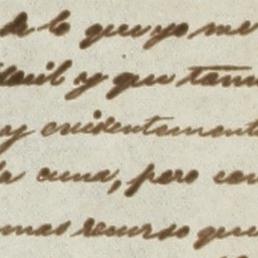 de lo que yo me
y que tam
y evidentemente
la cuna, pero con
mas recurso que